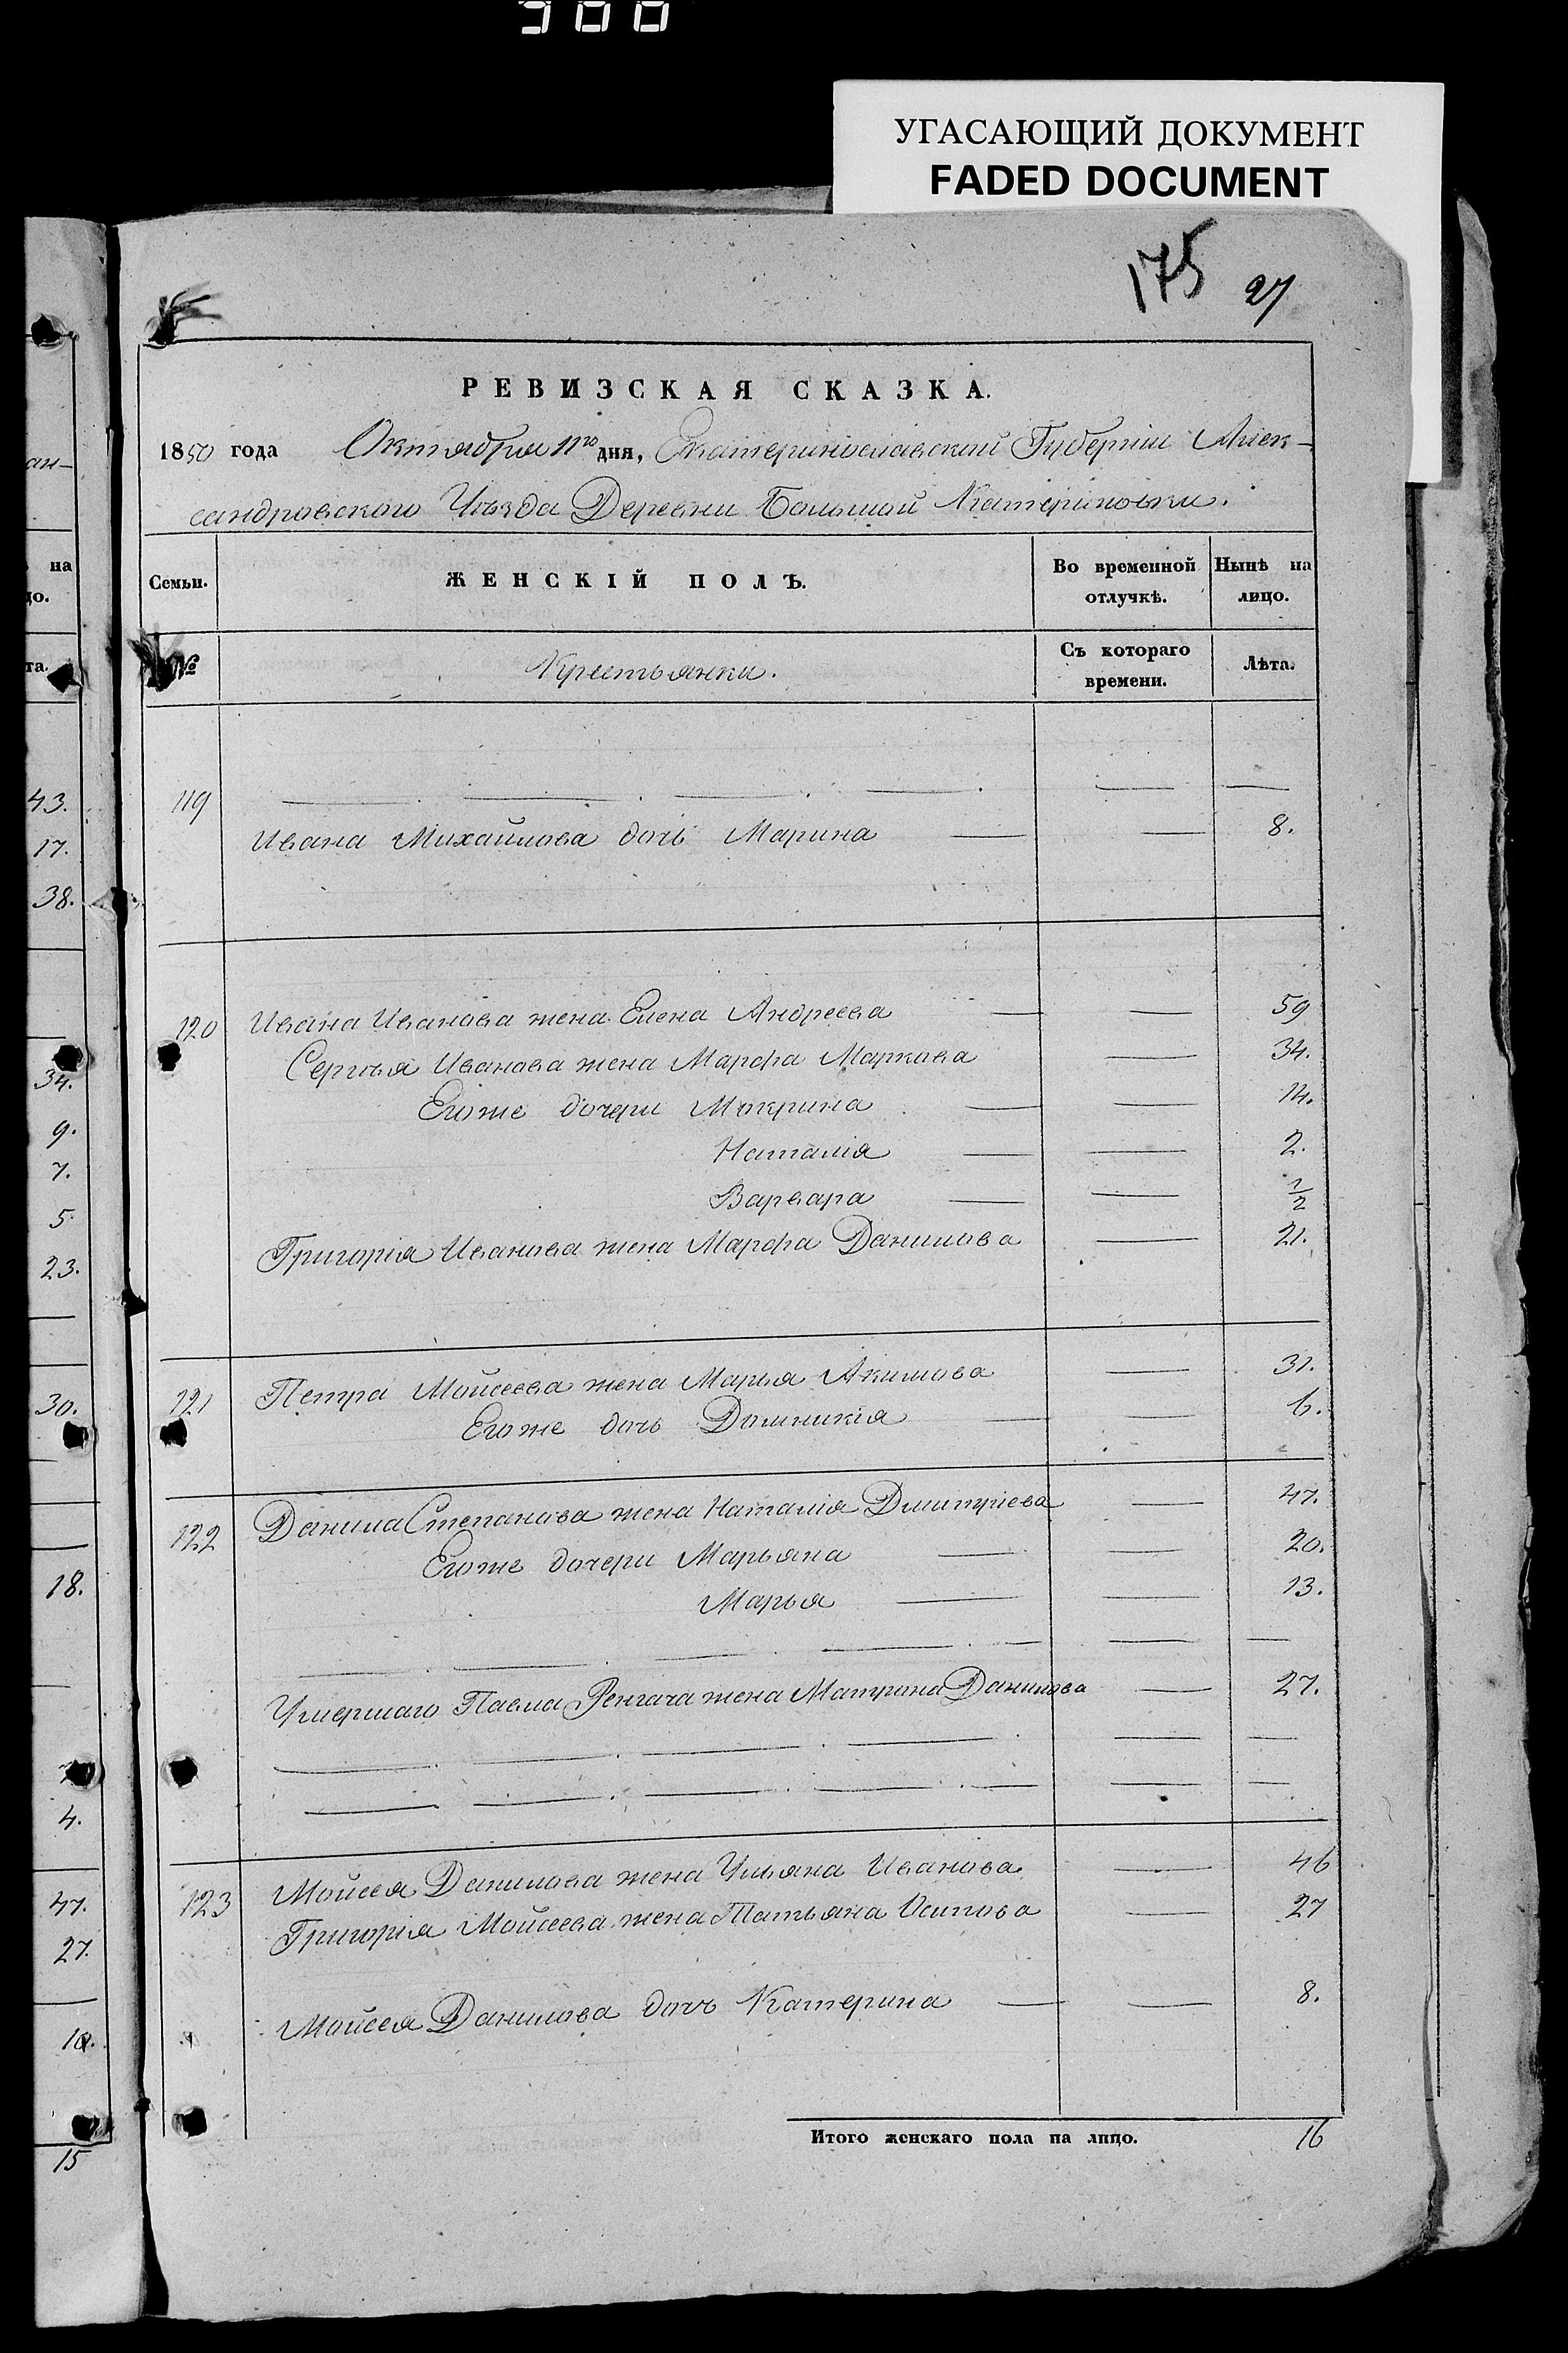 300
УГАСАЮЩИЙ ДОКУМЕНТ
FADED DOCUMENT
175 27
РЕВИЗСКАЯ СКАЗКА.
1850 года Октября 11го дня, Екатеринославской Губерніи Алек-
сандровскаго Уѣзда Деревни Большой Катериновки.
Семьи. ЖЕНСКІЙ ПОЛЪ. Во временной отлучкѣ. Нынѣ на лицо.
№ Крестьянки. Съ котораго времени. Лѣта.
119
Ивана Михайлова дочь Марина — — 8.
120 Ивана Иванова жена Елена Андреева — — 59
Сергѣя Иванова жена Марфа Маркова — 34.
Егоже дочери Мокрина — — 14.
Наталія — — 2.
Варвара — — 1/2
Григорія Иванова жена Марфа Данилова — 21.
121 Петра Мойсеева жена Марья Акимова — 31.
Егоже дочь Домникія — — 6.
122 Данила Степанова жена Наталія Дмитріева — 47.
Егоже дочери Марьяна — — 20.
Марья — — 13.
Умершаго Павла Ренгача жена Матрона Данилова — 27.
123 Мойсея Данилова жена Ульяна Иванова — 46
Григорія Мойсеева жена Татьяна Осипова — 27
Мойсея Данилова дочь Катерина — — 8.
Итого женскаго пола на лицо. 16
ан-
на
цо.
та.
43.
17.
38.
34.
9.
7.
5.
23.
30.
18.
4.
47.
27.
15